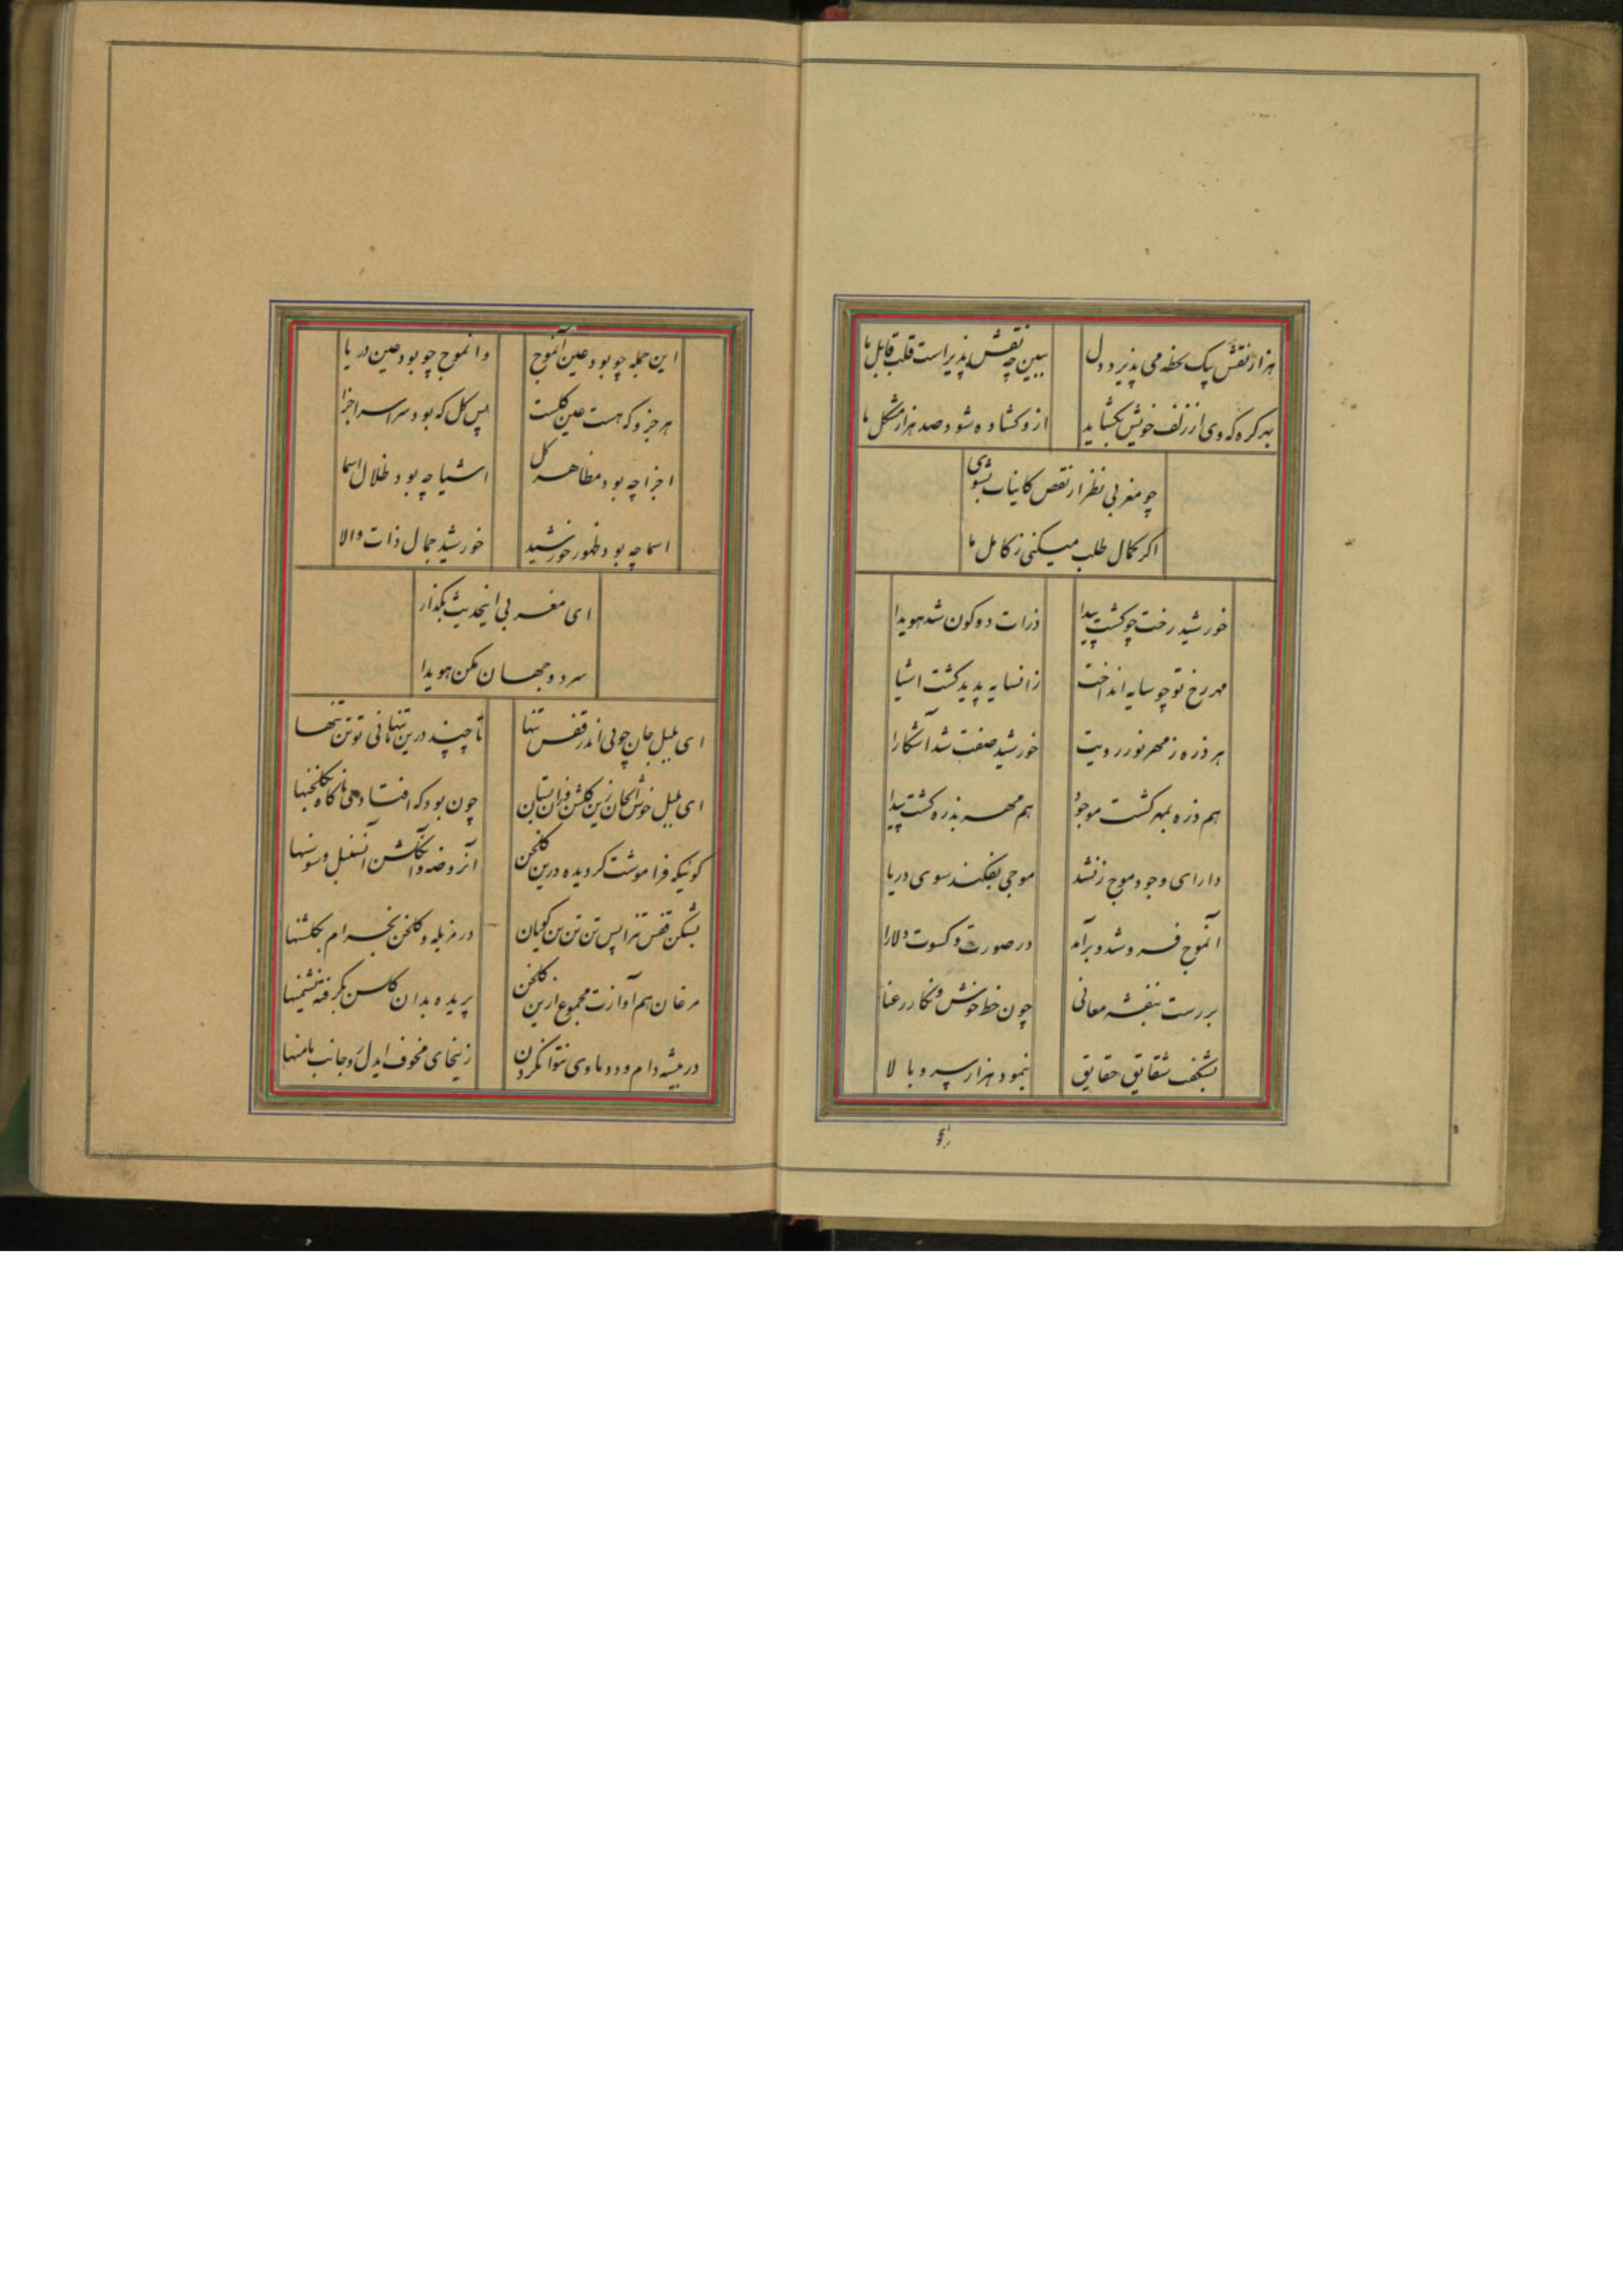 هزار نقش بیک لحظه می پذیرد دل
ببین چه نقش پذیر است قلب قابل ما
بهر کره که وی از زلف خویش بکشاید
ازو کشاده شود صد هزار مشکل ما
چو مغربی نظر از نقص کاینات بشوی
اکر کمال طلب میکنی ز کامل ما
خورشید رخت چو کشت پیدا
ذرات دو کون شد هویدا
مهر رخ تو چو سایه انداخت
زانسایه پدید کشت اشیا
هر ذره ز مهر نور رویت
خورشید صفت شد آشکارا
هم ذره بمهر کشت موجود
هم مهر بذره کشت پیدا
دارای وجود موج زن شد
موجی بفکند سوی دریا
آنموج فرو شد و برآمد
در صورت و کسوت دلارا
بررست بنفشه معانی
چون خط خوش نکار رعنا
بشکفت شقایق حقایق
بنمود هزار سرو بالا
این جمله چو بود عین آنموج
وانموج چو بود عین دریا
هر جزو که هست عین کلست
پس کل که بود سراسر اجزا
اجزا چه بود مظاهر کل
اشیا چه بود ظلال اسما
اسما چه بود ظهور خورشید
خورشید جمال ذات والا
ای مغربی اینحدیث بکذار
سر دو جهان مکن هویدا
ای بلبل جان چونی اندر قفس تنها
تا چند درین تنها مانی تو تن تنها
ای بلبل خوش الحان زین کلشن
چون بود که افتادی ناکاه بکلخنها
کوئیکه فراموشت کردیده درین کلخن
آنروضه و آن کلشن آنسنبل و سوسنها
بشکن قفس تنرا پس تن تن تن کویان
در مزبله و کلخن بخرام بکلشنها
مرغان هم آوازت مجموع ازین کلخن
پریده بدان کلسن بکرفته نشیمنها
در بیشه دام و دد ماوی نتوان کردن
زینجای مخوف ایدل رو جانب مامنها